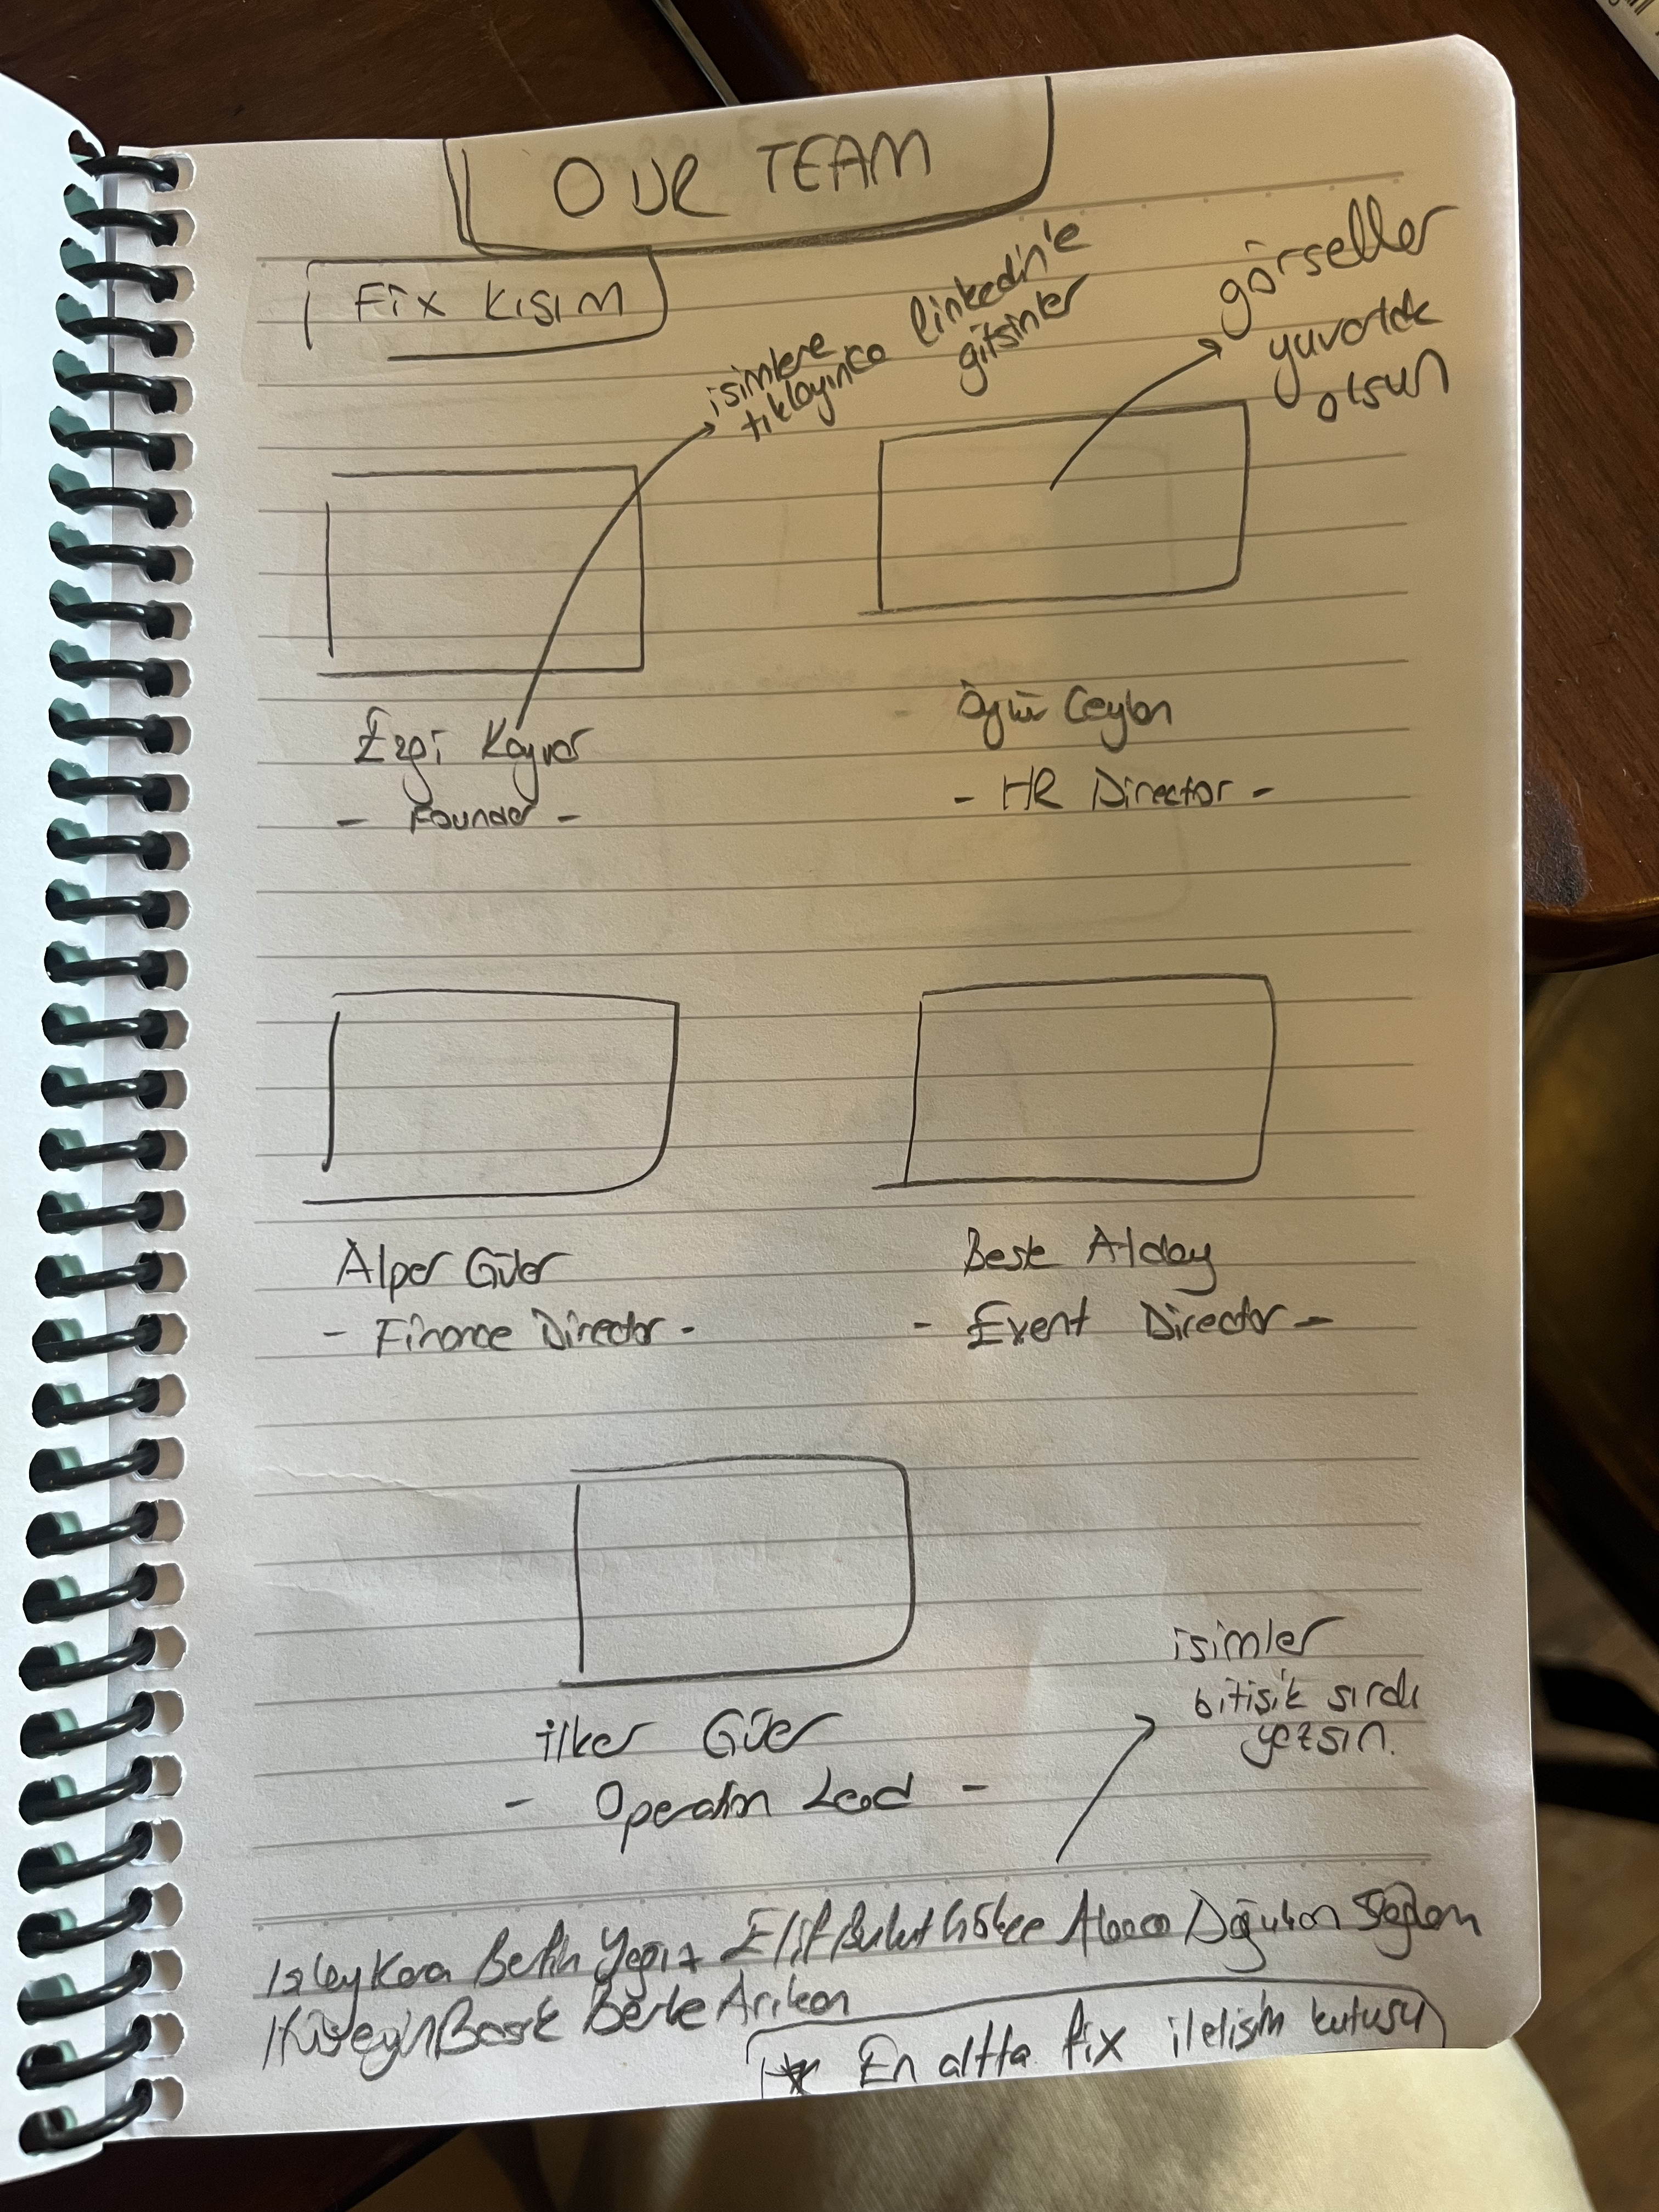 OUR TEAM
Fix Kısım
isimlere
tıklayınca linkedin'e
gitsinler
görseller
yuvarlak
olsun
Ezgi
- Founder -
Ceylan
- HR Director -
Alper Güler
- Finance Director -
Beste Alday
- Event Director -
ilker Güler
- Operation Lead -
isimler
bitişik sıralı
yazsın.
Kara Yağız Elif Bulut Gökçe Doğukan Sağlam
Hüseyin Berke Arıkan
* En altta fix iletisim kutusu